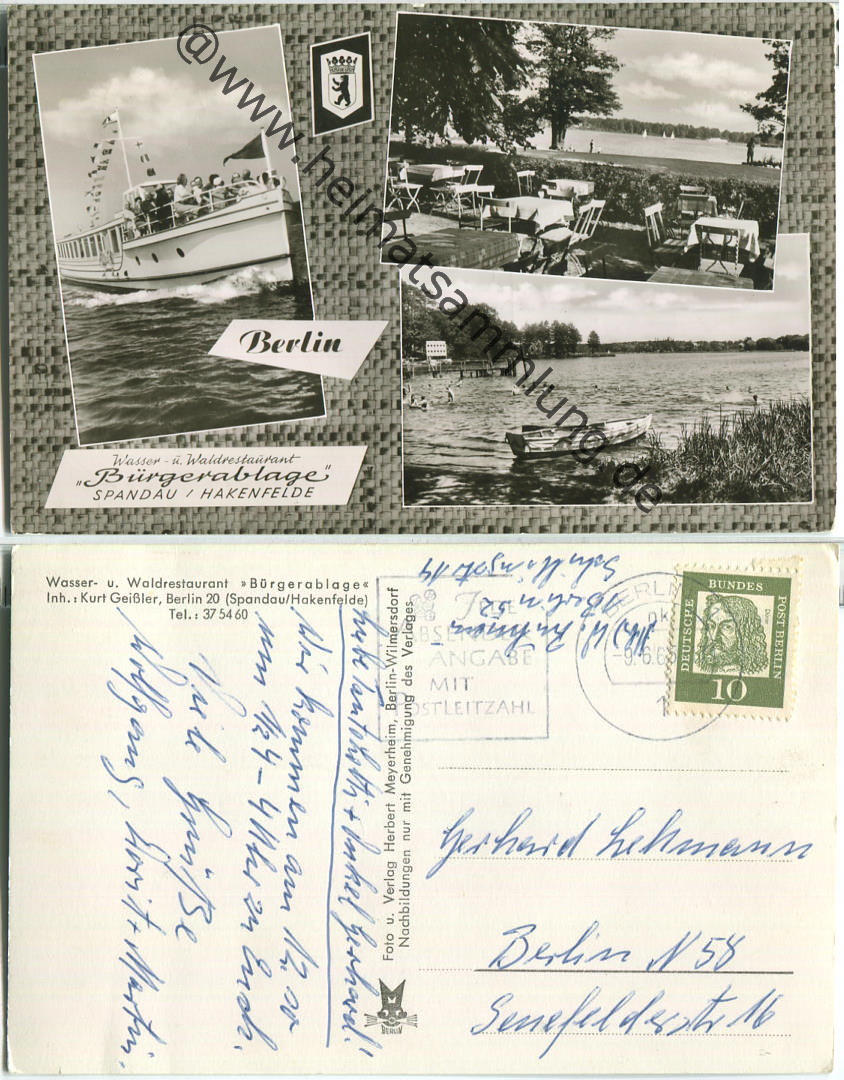 @www.heimatsammlung.de
Berlin
Wasser - u. Waldrestaurant
"Bürgerablage"
SPANDAU / HAKENFELDE
Wasser- u. Waldrestaurant »Bürgerablage«
Inh.: Kurt Geißler, Berlin 20 (Spandau/Hakenfelde)
Tel.: 37 54 60
Foto u. Verlag Herbert Meyerheim, Berlin-Wilmersdorf
Nachbildungen nur mit Genehmigung des Verlages
BERLIN
Berlin 52
ANGABE
MIT
POSTLEITZAHL
BERLIN
-9.6.6
DEUTSCHE BUNDESPOST BERLIN
Dürer
10
+ Onkel Gerhard!
Wir kommen am
1/24 - 4 Uhr zu Euch.
Viele Grüße
Wolfgang, + Martin
Gerhard Lehmann
Berlin N 58
Senefelderstr 16